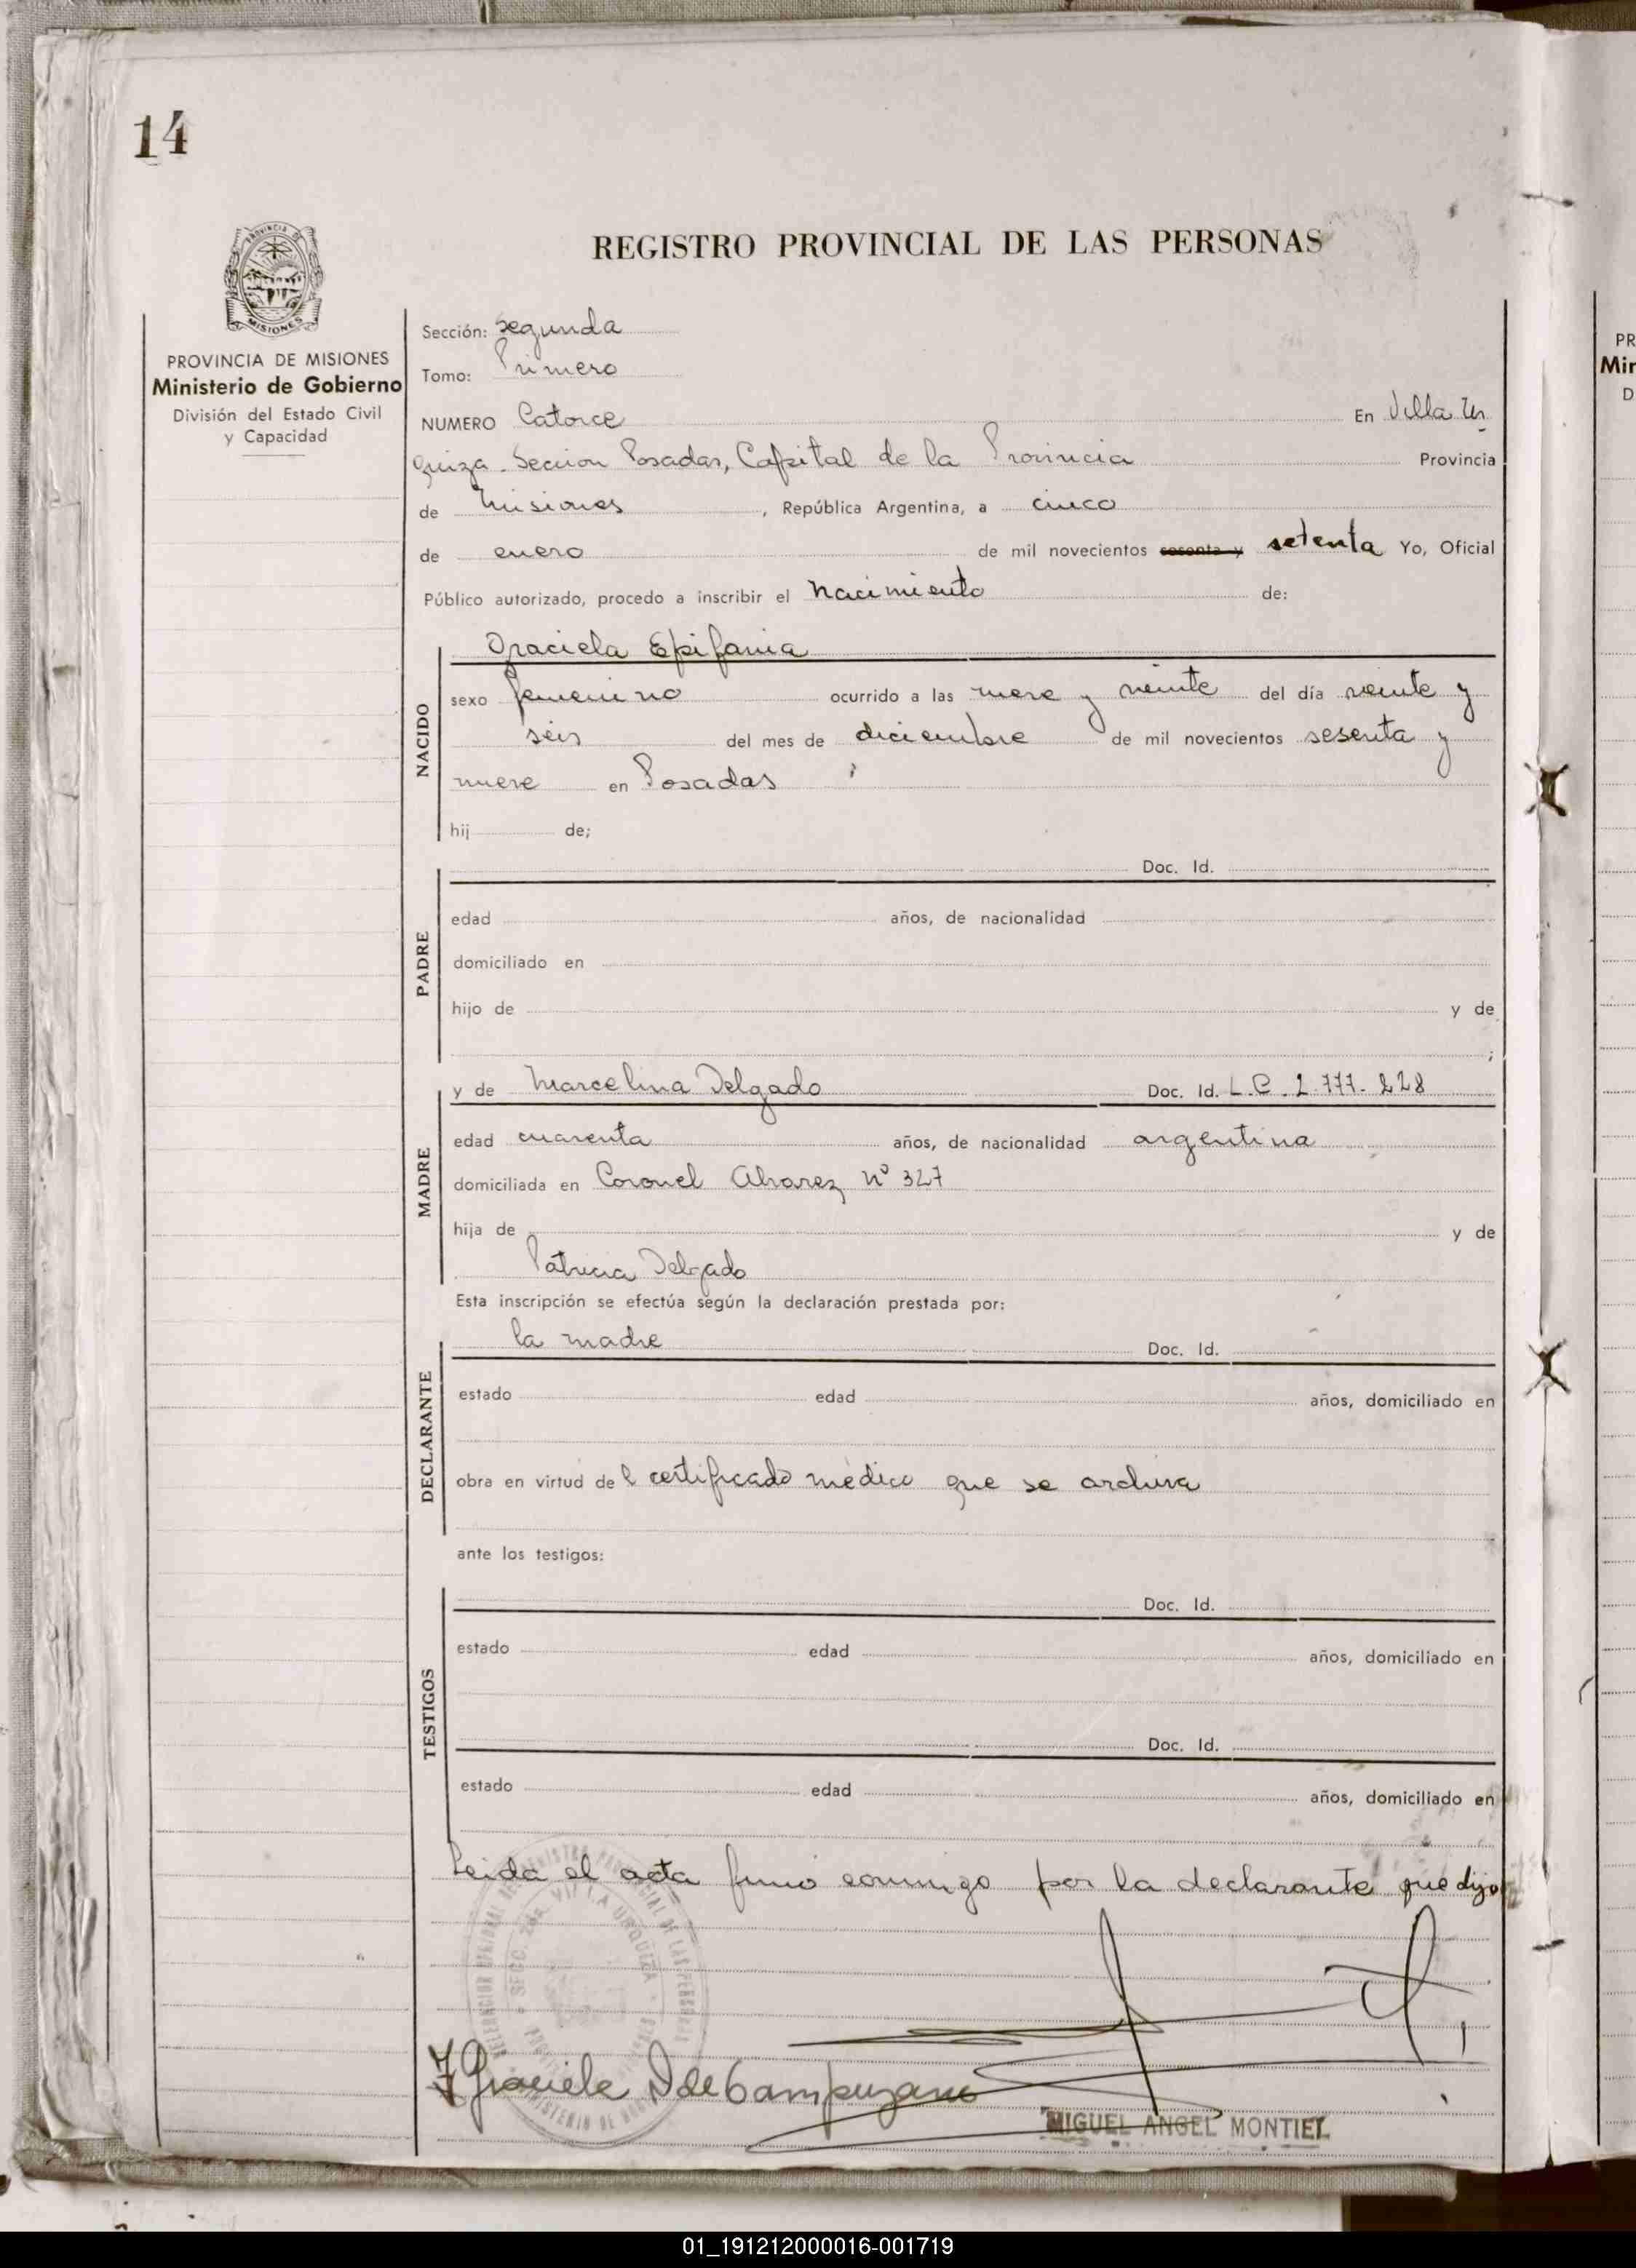 14
REGISTRO PROVINCIAL DE LAS PERSONAS
PROVINCIA DE
MISIONES
PROVINCIA DE MISIONES
Ministerio de Gobierno
División del Estado Civil
y Capacidad
Sección: Segunda
Tomo: Primero
NUMERO Catorce En Villa Ur
quiza. Seccion Posadas, Capital de la Provincia Provincia
de Misiones, República Argentina, a cinco
de enero de mil novecientos sesenta y setenta Yo, Oficial
Público autorizado, procedo a inscribir el nacimiento de:
NACIDO
Graciela Epifania
sexo femenino ocurrido a las nueve y veinte del día veinte y
seis del mes de diciembre de mil novecientos sesenta y
nueve en Posadas
hij de;
PADRE
Doc. Id.
edad años, de nacionalidad
domiciliado en
hijo de y de
;
MADRE
y de Marcelina Delgado Doc. Id. L.C. 2.777.228
edad cuarenta años, de nacionalidad argentina
domiciliada en Coronel Alvarez Nº 327
hija de y de
Patricia Delgado
Esta inscripción se efectúa según la declaración prestada por:
DECLARANTE
la madre Doc. Id.
estado edad años, domiciliado en
obra en virtud del certificado médico que se archiva
ante los testigos:
TESTIGOS
Doc. Id.
estado edad años, domiciliado en
Doc. Id.
estado edad años, domiciliado en
Leida el acta firmó conmigo por la declarante que dijo
SECC. 2da. VILLA URQUIZA
Graciela D de Campuzano
MIGUEL ANGEL MONTIEL
PR
Min
D
01_191212000016-001719